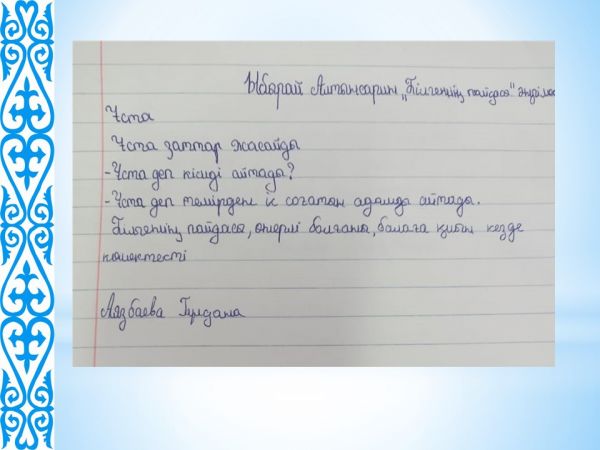 Ыбырай Алтынсарин „Білгеннің пайдасы" әңгімес
Ұста
Ұста заттар жасайды
- Ұста деп кісиді айтады?
- Ұста деп темірден іс соғатын адамда айтады.
Білгеннің пайдасы, өнерлі болғаны, балаға қиын кезде
көмектесті
Аязбаева Гүлдана